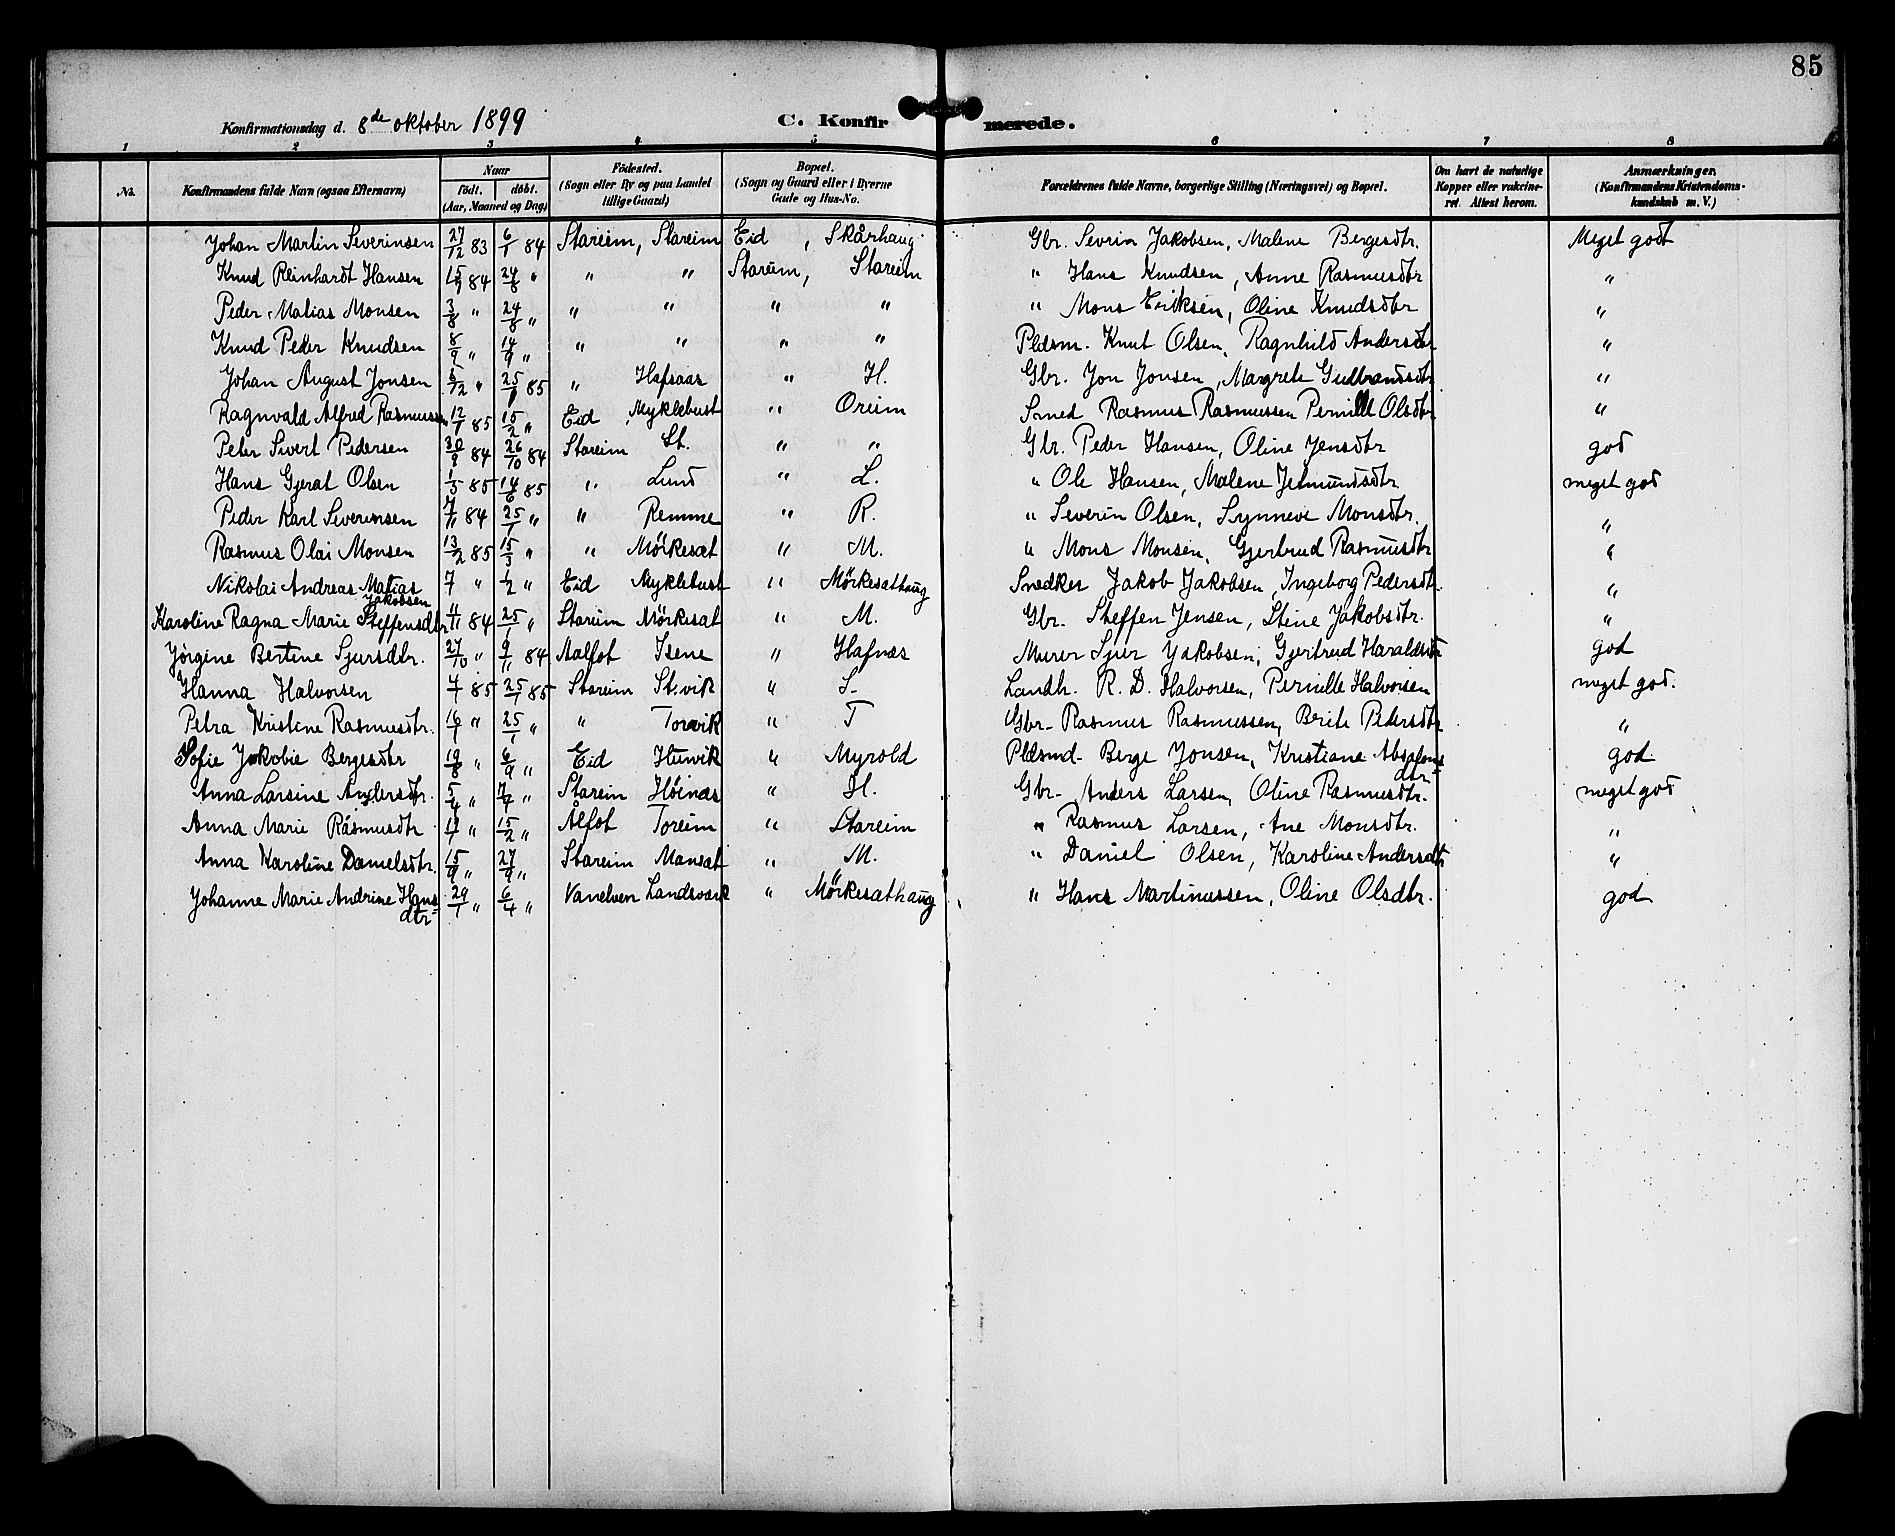 85
Konfirmationsdag d. 8de oktober 1899 C. Konfirmerede.
1 2 3 4 5 6 7 8
No. Konfirmandens fulde Navn (ogsaa Efternavn) Naar født. døbt. (Aar, Maaned og Dag) Fødested. (Sogn eller By og paa Landet tillige Gaard) Bopæl. (Sogn og Gaard eller i Byerne Gade og Hus-No. Forældrenes fulde Navne, borgerlige Stilling (Næringsvei) og Bopæl. Om havt de naturlige Kopper eller vakcineret. Attest herom. Anmærkninger. (Konfirmandens Kristendomskundskab m. V.)
Johan Martin Severinsen 27/12 83 6/1 84 Stareim, Stareim Eid, Skårhaug Gbr. Sevrin Jakobsen, Malene Bergesdtr. Meget godt
Knud Reinhardt Hansen 15/7 84 24/8 " " " Stareim, Stareim " Hans Knudsen, Anne Rasmusdtr "
Peder Matias Monsen 3/8 " 24/8 " " " " " " Mons Eriksen, Oline Knudsdtr "
Knud Peder Knudsen 8/9 " 14/9 " " " " " Pldsm. Knut Olsen, Ragnhild Andersdtr "
Johan August Jonsen 5/12 " 25/1 85 " Hafsaas " H. Gbr. Jon Jonsen, Margrete Gudbrandsdtr "
Ragnvald Alfred Rasmussen 12/1 85 15/2 " Eid, Myklebust " Oreim Smed Rasmus Rasmussen Pernille Olsdtr "
Peter Sivert Pedersen 30/9 84 26/10 84 Stareim St. " " Gbr. Peder Hansen, Oline Jensdtr god
Hans Gjerat Olsen 1/5 85 14/6 85 " Lund " L. " Ole Hansen, Malene Jetmundsdtr. meget god
Peder Karl Severinsen 7/11 84 25/1 " " Remme " R. " Severin Olsen, Synneve Monsdtr. "
Rasmus Olai Monsen 13/2 85 15/3 " " Mörkesæt " M. " Mons Monsen, Gjertrud Rasmusdtr "
Nikolai Andreas Matias Jakobsen 7 " 1/2 " Eid Myklebust " Mörkesæthaug Snedker Jakob Jakobsen, Ingeborg Pedersdt. "
Karoline Ragna Marie Steffensdtr 4/11 84 25/1 " Stareim Mörkesæt " M. Gbr. Steffen Jensen, Stine Jakobsdtr. "
Jörgine Bertine Sjursdtr. 27/10 " 9/11 84 Aalfot Isene " Hafnæs Murer Sjur Jakobsen, Gjertrud Haraldsdtr god
Hanna Halvorsen 4/1 85 25/1 85 Stareim St.vik " S. Landh. R. D. Halvorsen, Pernille Halvorsen meget god.
Petra Kristine Rasmusdtr. 16/1 " 25/1 " " Torvik " T Gbr. Rasmus Rasmussen, Brite Pedersdtr "
Sofie Jakobie Bergesdtr 19/8 " 6/9 " Eid " Myrold Pldsmd. Berge Jonsen, Kristiane Absalonsdtr god
Anna Larsine Andersdtr. 5/4 " 7/7 " Stareim Höinæs " H. Gbr. Anders Larsen, Oline Rasmusdtr. meget god
Anna Marie Rasmusdtr " 15/2 " Ålfot Toreim " Stareim " Rasmus Larsen, Ane Monsdtr. "
Anna Karoline Danielsdtr. 15/9 " 27/9 " Stareim Mansæt " M. " Daniel Olsen, Karoline Andersdtr "
Johanne Marie Andrine Hansdtr 29/1 " 6/4 " Vanelven " Mörkesæthaug " Hans Martinussen, Oline Olsdtr. god